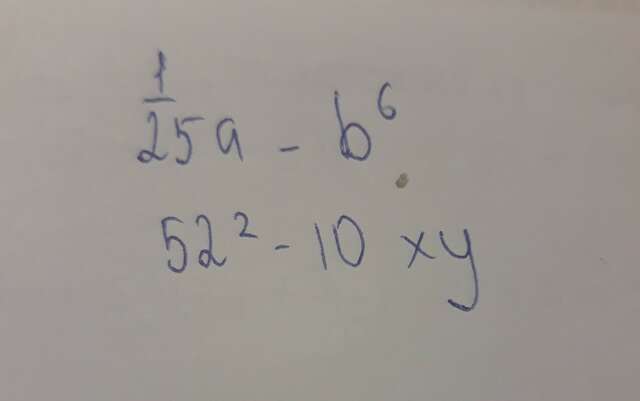 1/25a - b⁶
52² - 10 xy